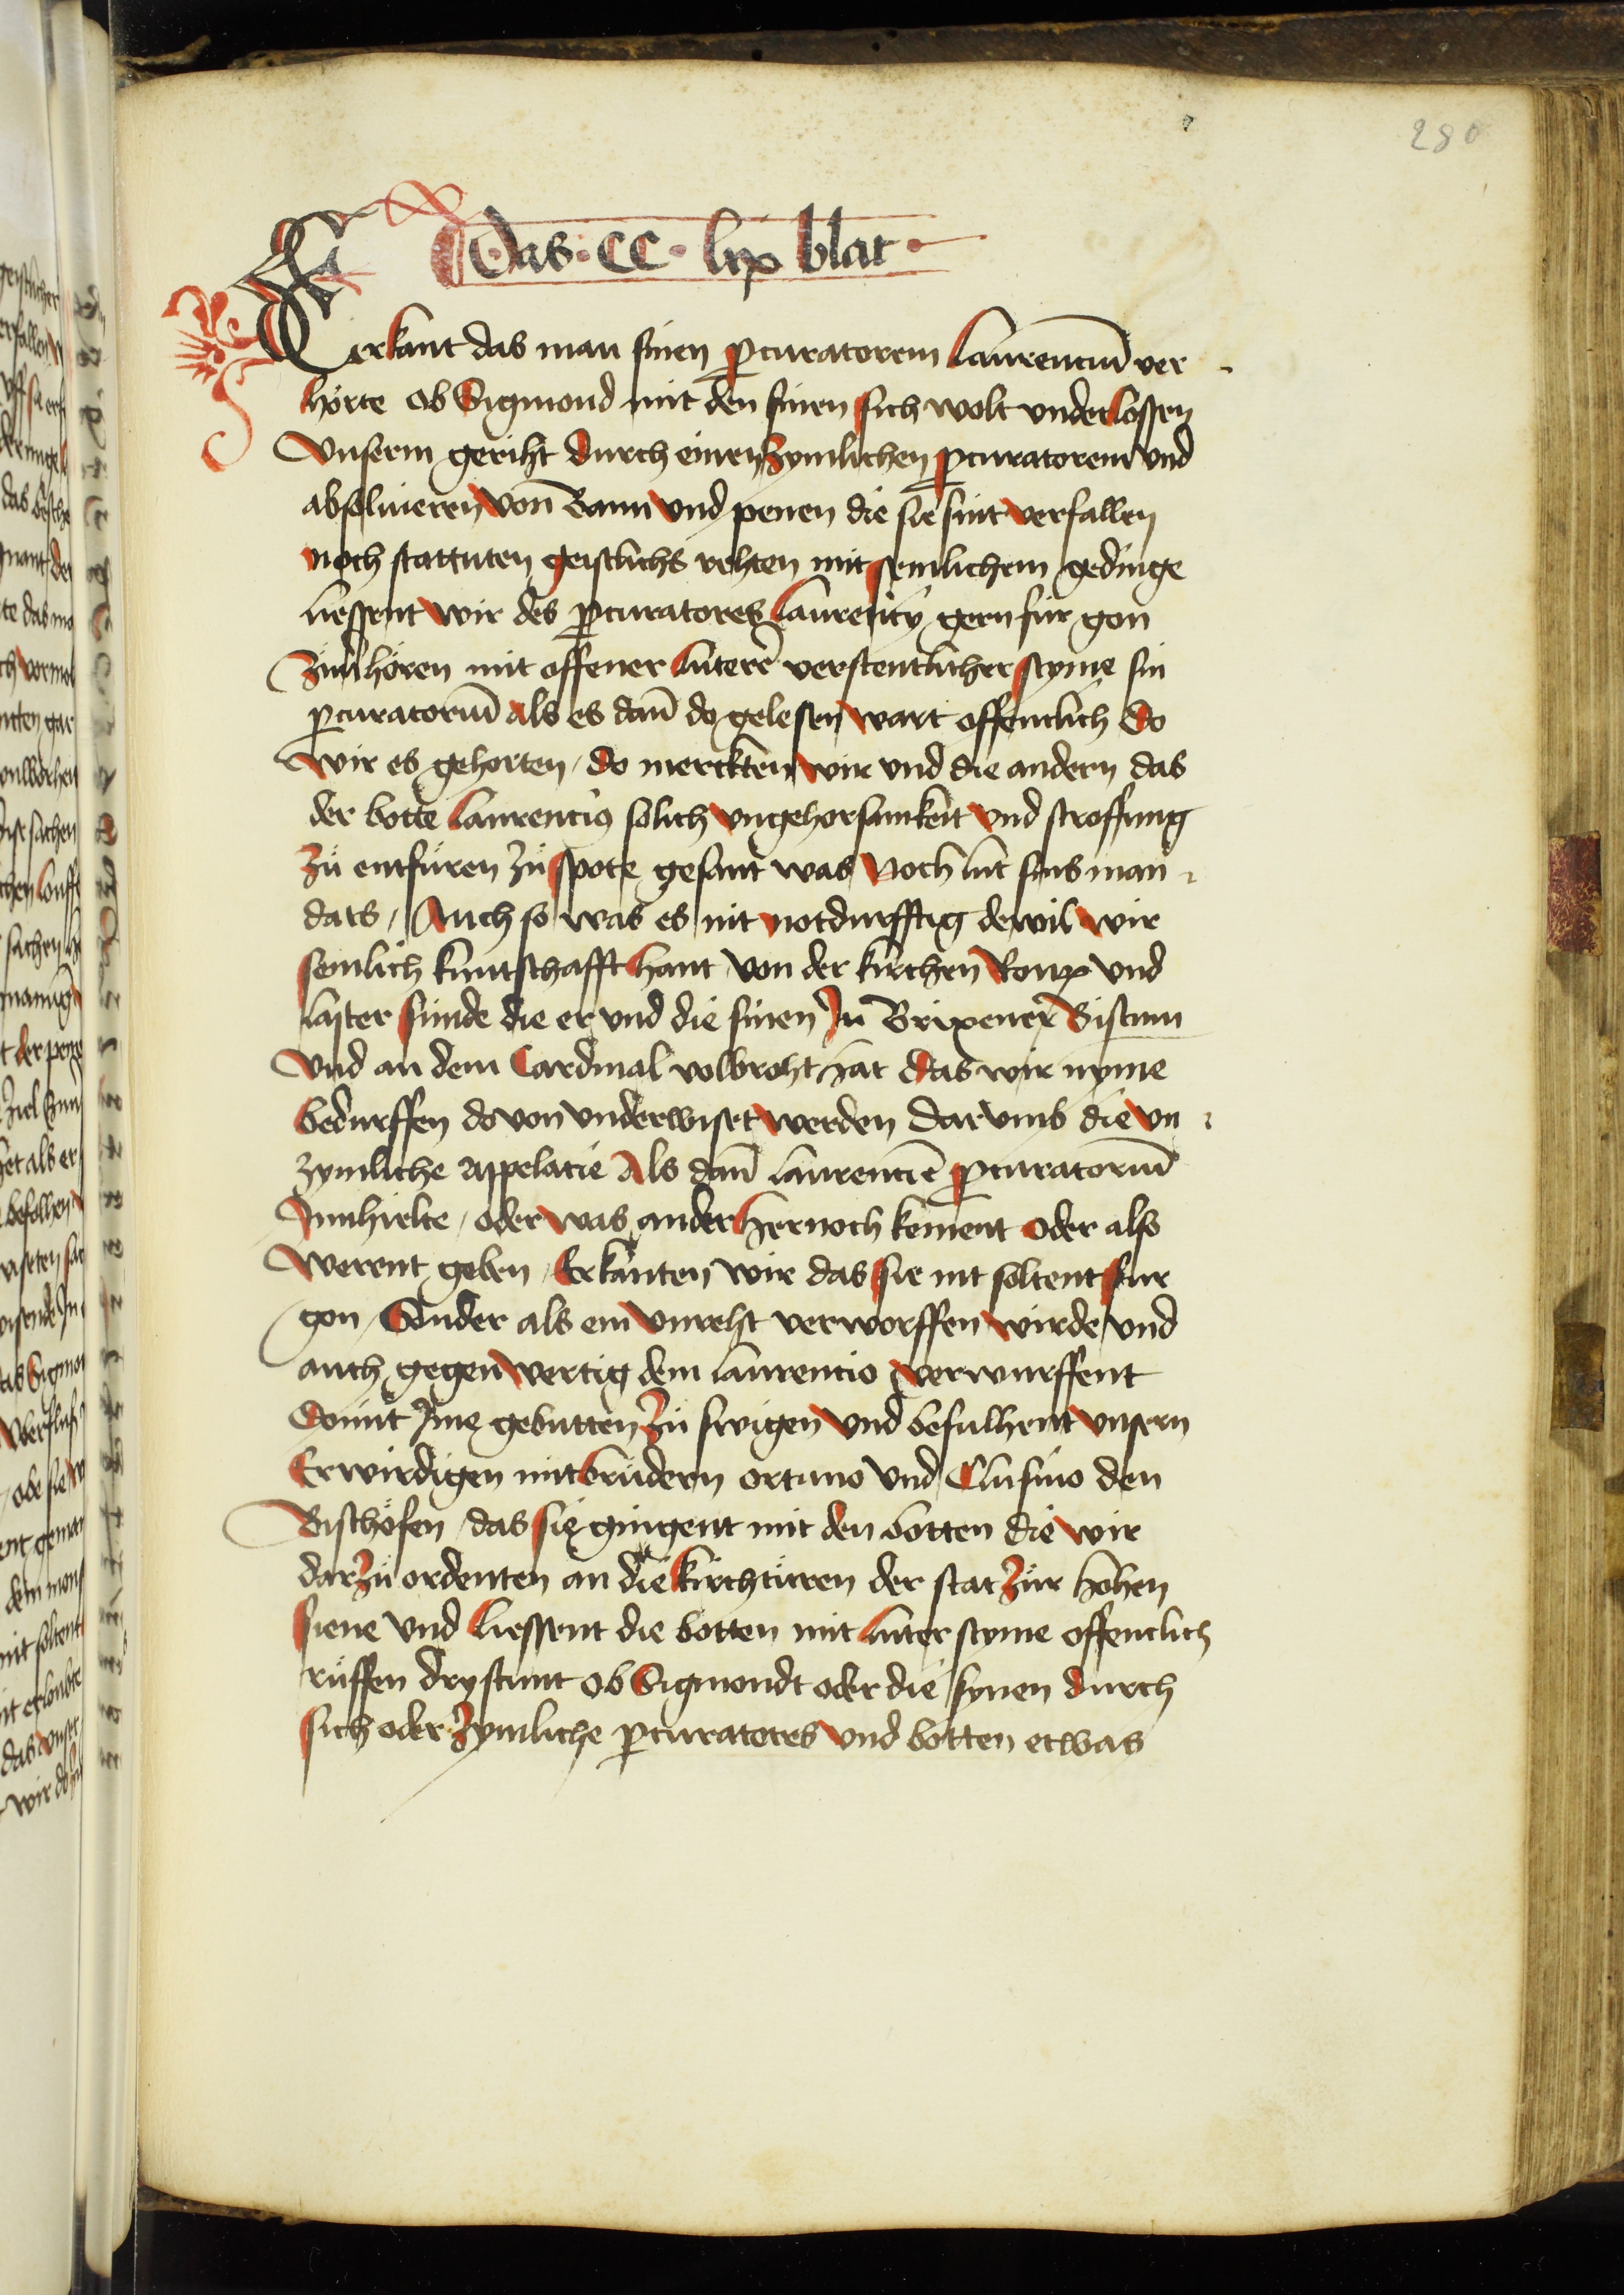 280
Das · CC · lix blat ·
erkant das man sinen ꝓcuratorem laurenciū ver
hörte ob Sigmond mit den sinen sich wolt underlossen
Unserm geriht durch einen zymlichen ꝓcuratorem und
absoluieren von Bann und penen die sie sint verfallen
noch stattuten geistlichs rehten mit semlichem gedinge
liessent wir des ꝓcuratores laurencÿ gern für gon
zuͦ hören mit offener luterer verstentlicher styme sin
ꝓcuratoriū als es dañ do gelesen wart offentlich Do
wir es gehorten / do merckten wir und die andern das
der botte laurencius solich ungehorsamkeit und stroffung
zuͦ entfüren zuͦ spote gesant was Noch lut sins man
dats / Auch so was es nit notdurfftig dewil wir
semlich kuntschafft hant von der kirchen Roup und
laster sünde die er und die sinen Jn Brixener Bistum
Und an dem Cardinal volbroht hat Das wir nyme
bedurffen do von underwiset werden Dar umb die un
zymliche appelacie Als dañ laurencie ꝓcuratoriū
Jnnhielte / oder was ander hernoch kement oder also
werent geben / Erkanten wir das sie nit soltent für
gon / Sunder als ein unreht verworffen wirde und
auch gegenwertig dem laurencio verwurffent
Domit Jme gebutten zuͦ swigen Und befulhent unsern
Erwirdigen mitbrüdern ortano Und Clusino den
Bischöfen / das sie gingent mit den botten die wir
darzuͦ ordenten an die kirchtüren der stat zuͦr hohen
siene Und liessent die botten mit luter styme offentlich
ruͦffen drystunt ob Sigmondt oder die synen durch
sich oder zymliche ꝓcuratores und botten etwas